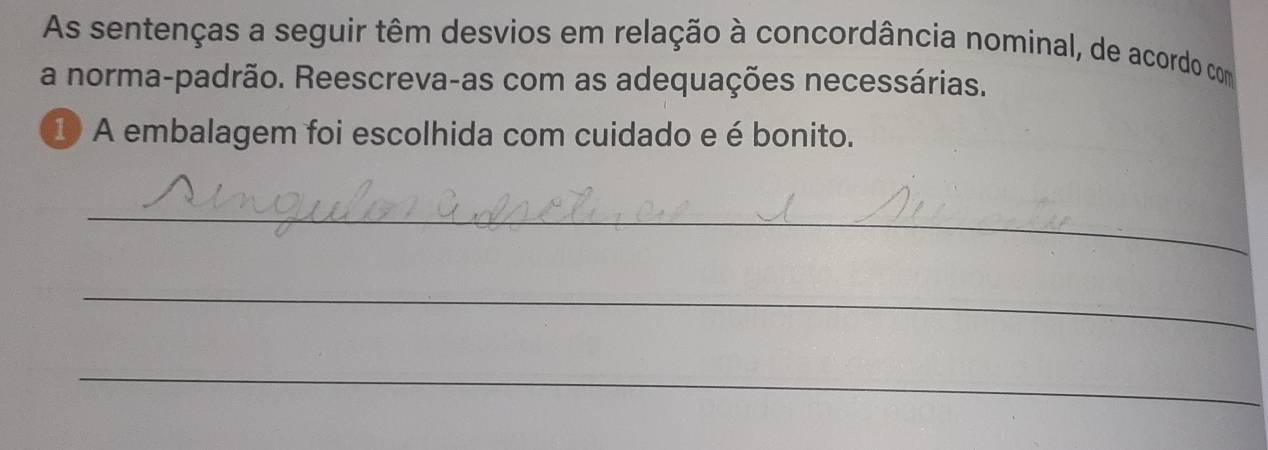 As sentenças a seguir têm desvios em relação à concordância nominal, de acordo com
a norma-padrão. Reescreva-as com as adequações necessárias.
1 A embalagem foi escolhida com cuidado e é bonito.
singular